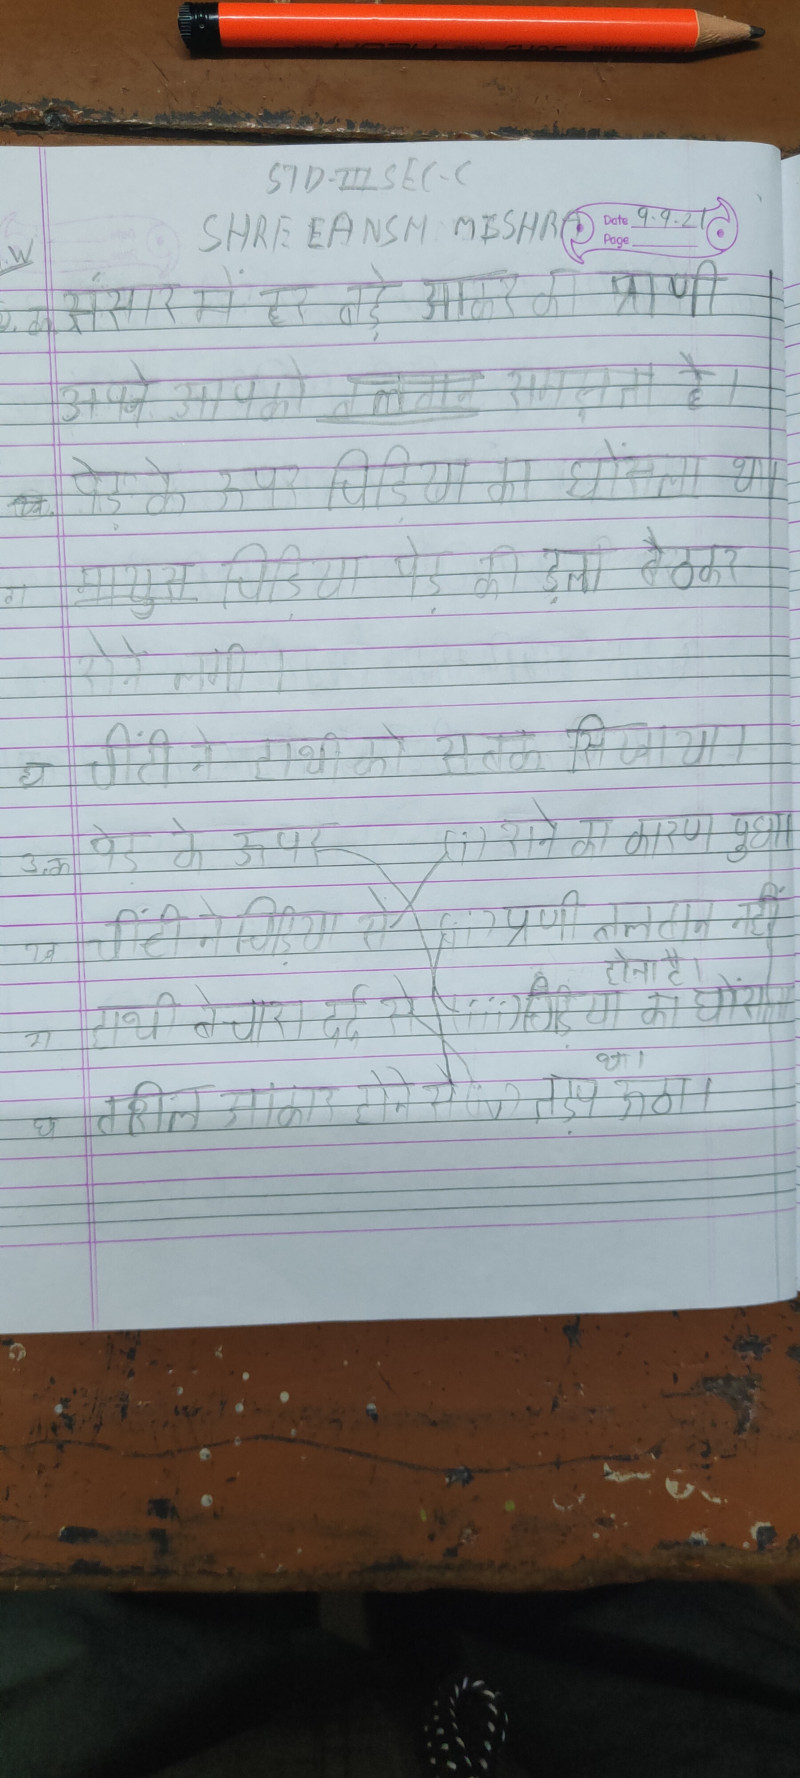 STD-III SEC-C
SHREEANSH MISHRA
Date 9.9.21
Page
.W
संसार में हर बड़े आकार का प्राणी
अपने आपको बलवान समझता है।
ख. पेड़ के ऊपर चिड़िया का घोंसला था
ग मायुस चिड़िया पेड़ की ड़ला बैठकर
रोने लगी।
घ चींटी ने हाथी को सबक सिखाया।
3.क पेड़ के ऊपर (i) राने का कारण पुछा
ख चींटी ने चिड़िया से (ii) प्रणी बलवान नहीं
होता है।
ग हाथी बेचारा दर्द से (iii) चिड़िया का घोंसला
था।
घ आकार होने से (iv) तड़प ऊठा।